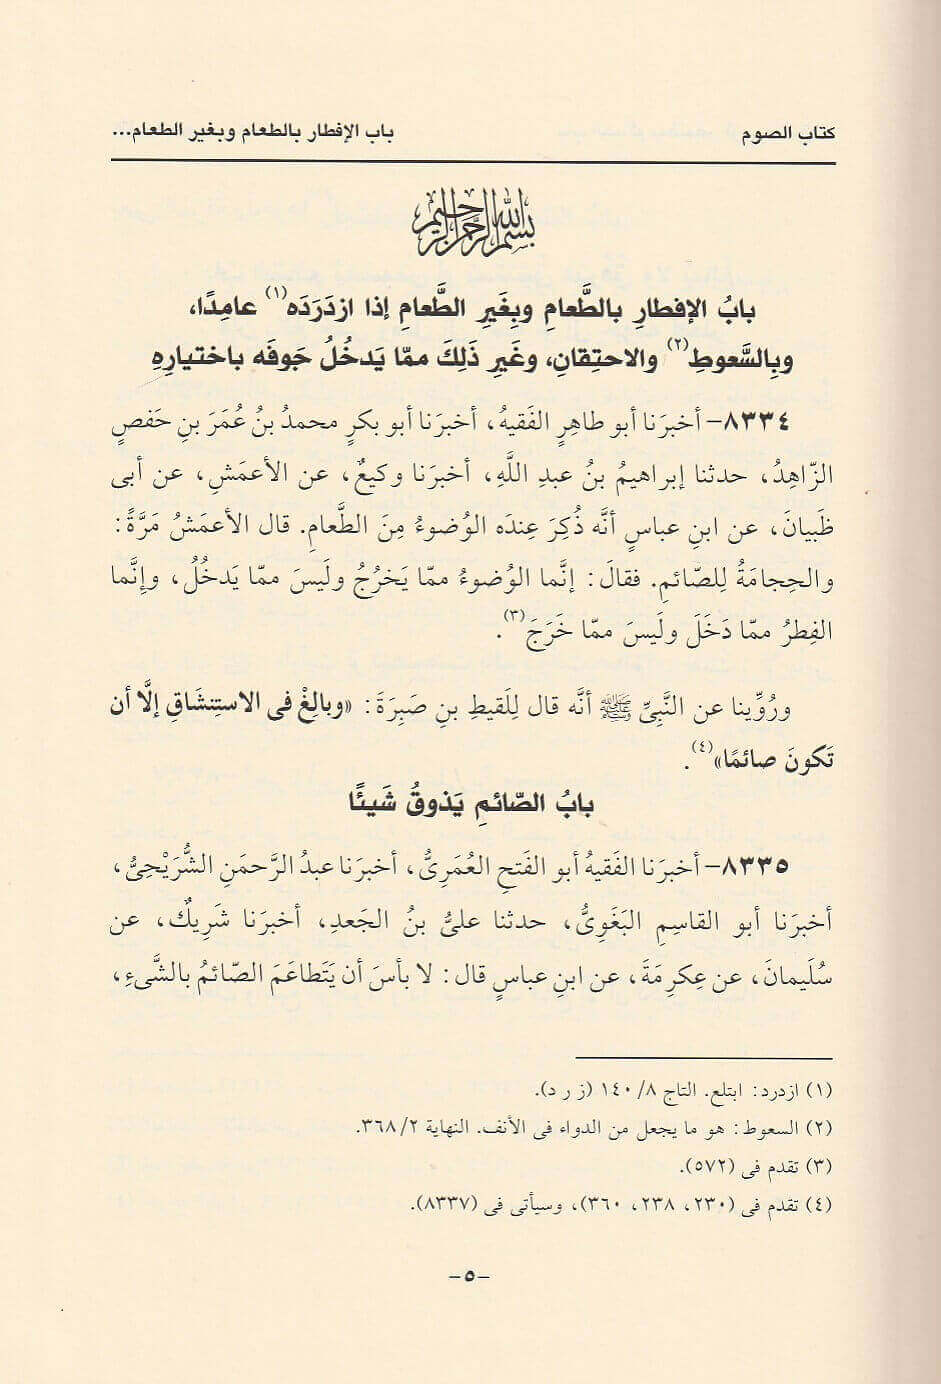 كتاب الصوم باب الإفطار بالطعام وبغير الطعام...
بسم الله الرحمن الرحيم
بابُ الإفطارِ بالطَّعامِ وبِغَيرِ الطَّعامِ إذا ازدَرَدَه(١) عامِدًا،
وبِالسَّعوطِ(٢) والاحتِقانِ، وغَيرِ ذَلِكَ ممّا يَدخُلُ جَوفَه باختيارِهِ
٨٣٣٤- أخبرَنا أبو طاهِرٍ الفَقيهُ، أخبرَنا أبو بكرٍ محمدُ بنُ عُمَرَ بنِ حَفصٍ
الزّاهِدُ، حدثنا إبراهيمُ بنُ عبدِ اللَّهِ، أخبرَنا وكيعٌ، عن الأعمَشِ، عن أبى
ظَبيانَ، عن ابنِ عباسٍ أنَّه ذُكِرَ عِندَه الوُضوءُ مِنَ الطَّعامِ. قال الأعمَشُ مَرَّةً:
والحِجامَةُ لِلصّائمِ. فقالَ: إنَّما الوُضوءُ ممّا يَخرُجُ ولَيسَ ممّا يَدخُلُ، وإِنَّما
الفِطرُ ممّا دَخَلَ ولَيسَ ممّا خَرَجَ(٣).
ورُوِّينا عن النَّبِىِّ ﷺ أنَّه قال لِلَقيطِ بنِ صَبِرَةَ: «وبالِغْ فى الاستِنشَاقِ إلَّا أن
تَكونَ صائمًا»(٤).
بابُ الصّائمِ يَذوقُ شَيئًا
٨٣٣٥- أخبرَنا الفَقيهُ أبو الفَتحِ العُمَرِىُّ، أخبرَنا عبدُ الرَّحمَنِ الشُّرَيْحِىُّ،
أخبرَنا أبو القاسِمِ البَغَوِىُّ، حدثنا علىُّ بنُ الجَعدِ، أخبرَنا شَرِيكٌ، عن
سُلَيمانَ، عن عِكرِمَةَ، عن ابنِ عباسٍ قال: لا بأسَ أن يَتَطاعَمَ الصّائمُ بالشَّىءِ،
(١) ازدرد: ابتلع. التاج ٨/ ١٤٠ (ز ر د).
(٢) السعوط: هو ما يجعل من الدواء فى الأنف. النهاية ٢/ ٣٦٨.
(٣) تقدم فى (٥٧٢).
(٤) تقدم فى (٢٣٠، ٢٣٨، ٣٦٠)، وسيأتى فى (٨٣٣٧).
-٥-